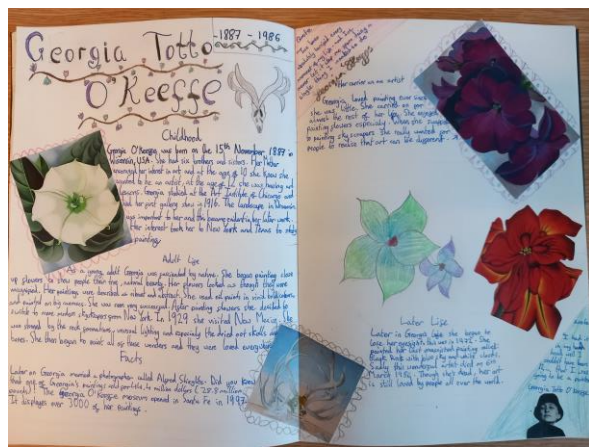 Georgia Totto
1887 - 1986
O'Keeffe
Childhood
Georgia O'Keeffe was born on the 15th November 1887 in
Wisconsin, USA. She had six brothers and sisters. Her Mother
encouraged her interest in art and at the age of 10 she knew she
wanted to be an artist, at the age of 12 she was having art
lessons. Georgia studied at the Art Institute of Chicago and
had her first gallery show in 1916. The landscape in Wisconsin
was important to her and the many in her later work.
Her interest took her to New York and Texas to study
painting.
Adult Life
As a young adult Georgia was fascinated by nature. She began painting close
up flowers to show people their true, natural beauty. Her flowers looked as though they were
Her paintings were based on and abstract. She used oil paints in vivid bold colours
and painted on big canvases. She was now very successful after painting flowers she decided to
switch to more modern skyscrapers from New York. In 1929 she visited New Mexico. She
was stunned by the rock formations, unusual lighting and especially the dried out skulls and
bones. She then began to paint all of these wonders and they were loved everywhere.
Facts
Later on Georgia married a photographer called Alfred Did you know
that one of Georgia's paintings sold for 44.4 million dollars (£28.8 million
pounds). The Georgia O'Keeffe museum opened in Santa Fe in 1997.
It displays over 3000 of her paintings.
Her carrier as an artist
Georgia loved painting ever since
she was little. She carried on for
almost the rest of her life. She enjoyed
painting flowers especially when she swapped
to painting skyscrapers. She really wanted for
people to realise that art can be different.
Later Life
Later in Georgia life she began to
lose her eyesight, this was in 1972. She
painted her last unassisted painting called
Black Rock with blue sky and white clouds.
Sadly this wonderful artist died on 6th
March 1986. Though she died, her art
is still loved by people all over the world.
Georgia Totto O'Keeffe